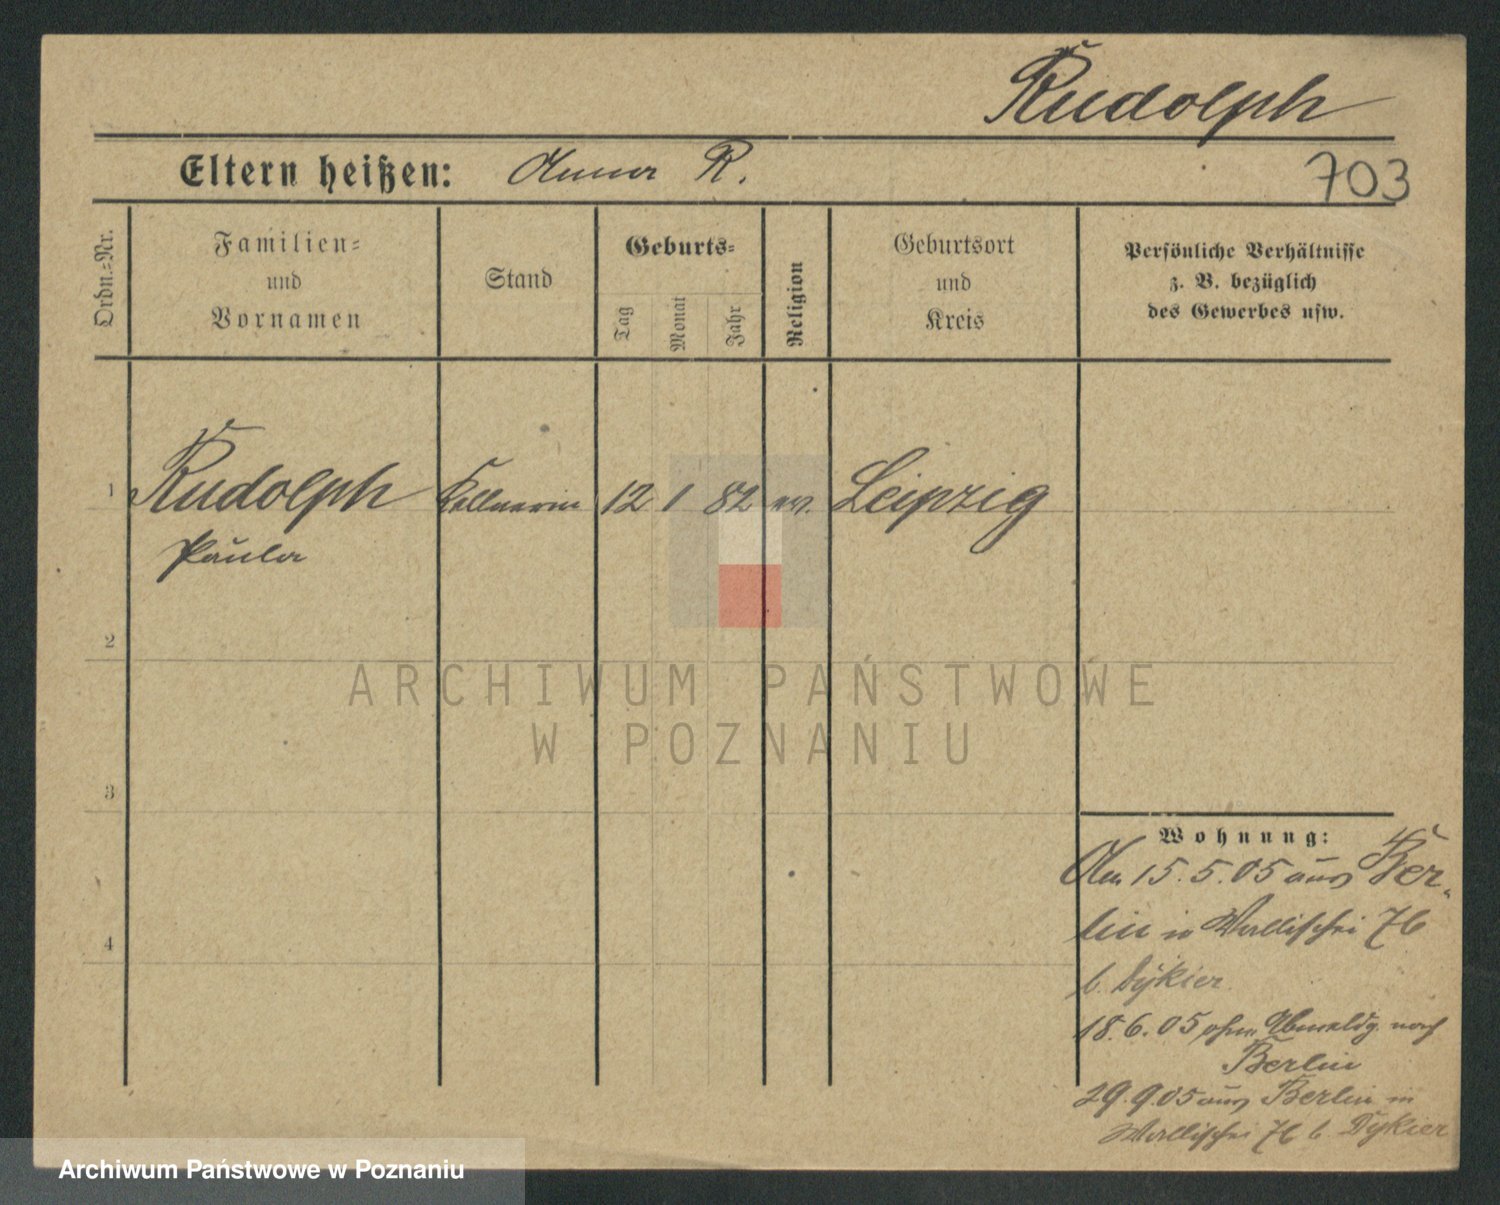 Rudolph
Eltern heißen: Anna R.
703
Ordn.=Nr.
Familien=
und
Vornamen
Stand
Geburts=
Tag
Monat
Jahr
Religion
Geburtsort
und
Kreis
Persönliche Verhältnisse
z. B. bezüglich
des Gewerbes usw.
1 Rudolph Kellnerin 12 1 82 ev. Leipzig
Paula
2
3
4
ARCHIWUM PAŃSTWOWE
W POZNANIU
Wohnung:
15.5.05 aus Ber-
lin in Wallischei 76
b. Dykier
18.6.05 ohne Abmeldg. nach
Berlin
29.9.05 aus Berlin in
Wallischei b. Dykier
Archiwum Państwowe w Poznaniu